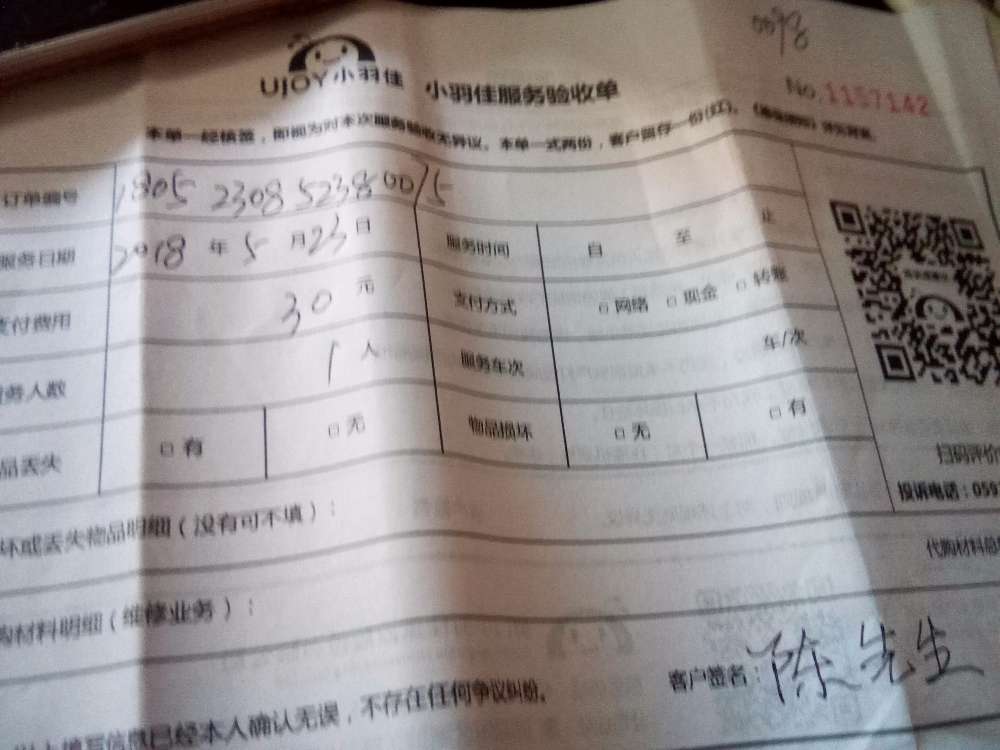 0098
UJOY小羽佳 小羽佳服务验收单 No.1157142
本单一经核签，即视为对本次服务验收无异议。本单一式两份，客户留存一份(红)。
订单编号 1805 2308 5238 0015
服务日期 2018 年 5 月 23 日 服务时间 自 至 止
支付费用 30 元 支付方式 □ 网络 □ 现金 □ 转账
务人数 1 人 服务车次 车/次
品丢失 □ 有 □ 无 物品损坏 □ 无 □ 有
扫码评价
投诉电话：059
坏或丢失物品明细（没有可不填）：
代购材料总
购材料明细（维修业务）：
客户签名：陈先生
以上填写信息已经本人确认无误，不存在任何争议纠纷。